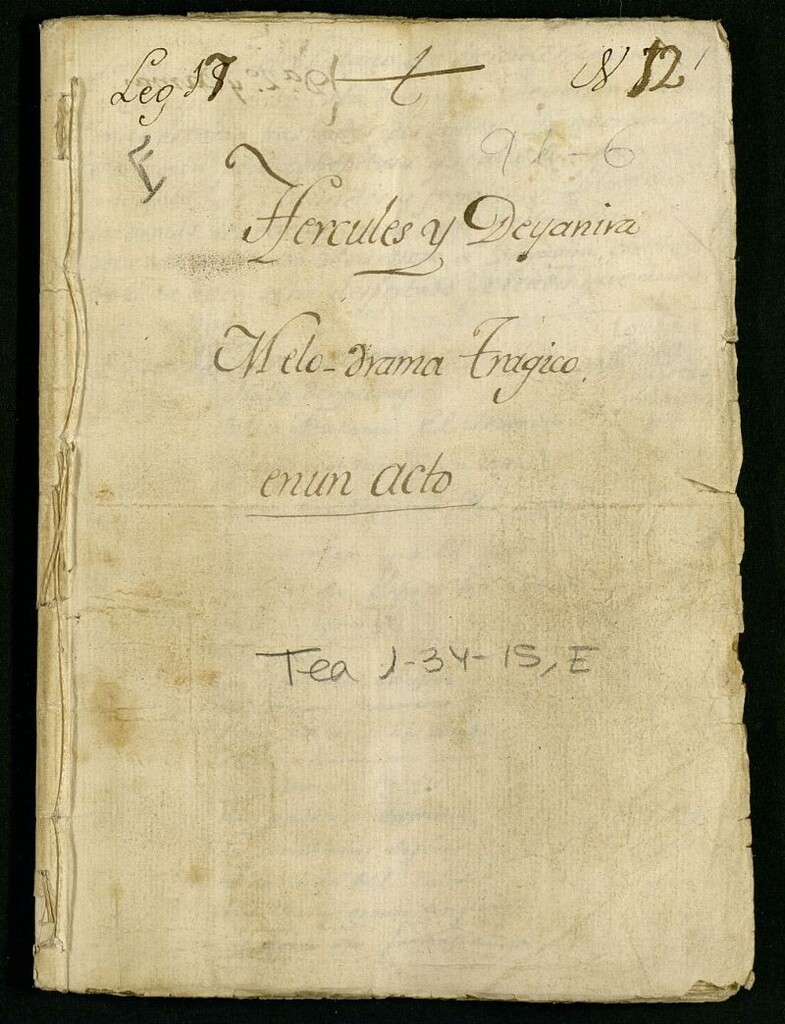 Leg 17 N 12
E
9 1 - 6
Hercules y Deyanira
Melo-drama Tragico.
enun acto
Tea 1-34-15, E